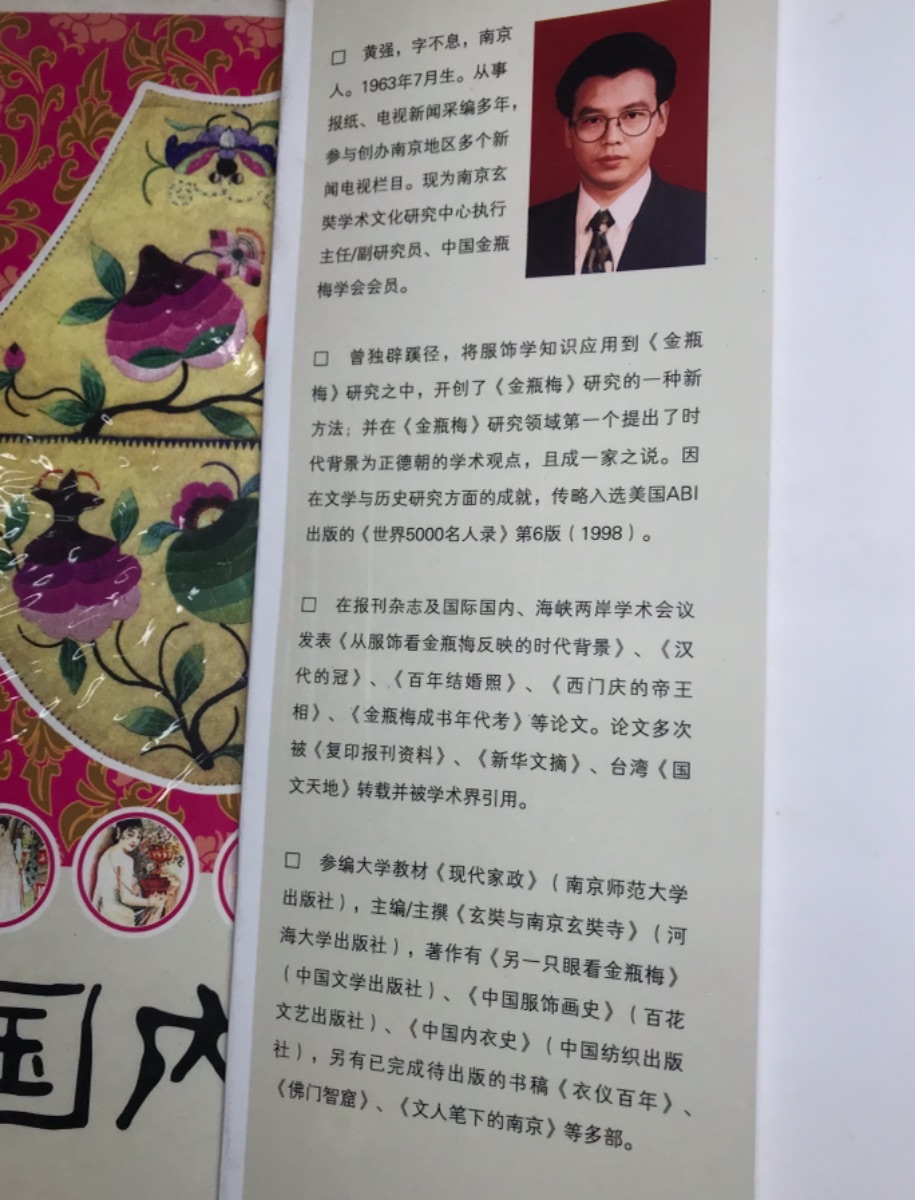 □ 黄强，字不息，南京
人。1963年7月生。从事
报纸、电视新闻采编多年，
参与创办南京地区多个新
闻电视栏目。现为南京玄
奘学术文化研究中心执行
主任/副研究员、中国金瓶
梅学会会员。
□ 曾独辟蹊径，将服饰学知识应用到《金瓶
梅》研究之中，开创了《金瓶梅》研究的一种新
方法；并在《金瓶梅》研究领域第一个提出了时
代背景为正德朝的学术观点，且成一家之说。因
在文学与历史研究方面的成就，传略入选美国ABI
出版的《世界5000名人录》第6版（1998）。
□ 在报刊杂志及国际国内、海峡两岸学术会议
发表《从服饰看金瓶梅反映的时代背景》、《汉
代的冠》、《百年结婚照》、《西门庆的帝王
相》、《金瓶梅成书年代考》等论文。论文多次
被《复印报刊资料》、《新华文摘》、台湾《国
文天地》转载并被学术界引用。
□ 参编大学教材《现代家政》（南京师范大学
出版社），主编/主撰《玄奘与南京玄奘寺》（河
海大学出版社），著作有《另一只眼看金瓶梅》
（中国文学出版社）、《中国服饰画史》（百花
文艺出版社）、《中国内衣史》（中国纺织出版
社），另有已完成待出版的书稿《衣仪百年》、
《佛门智窟》、《文人笔下的南京》等多部。
国内